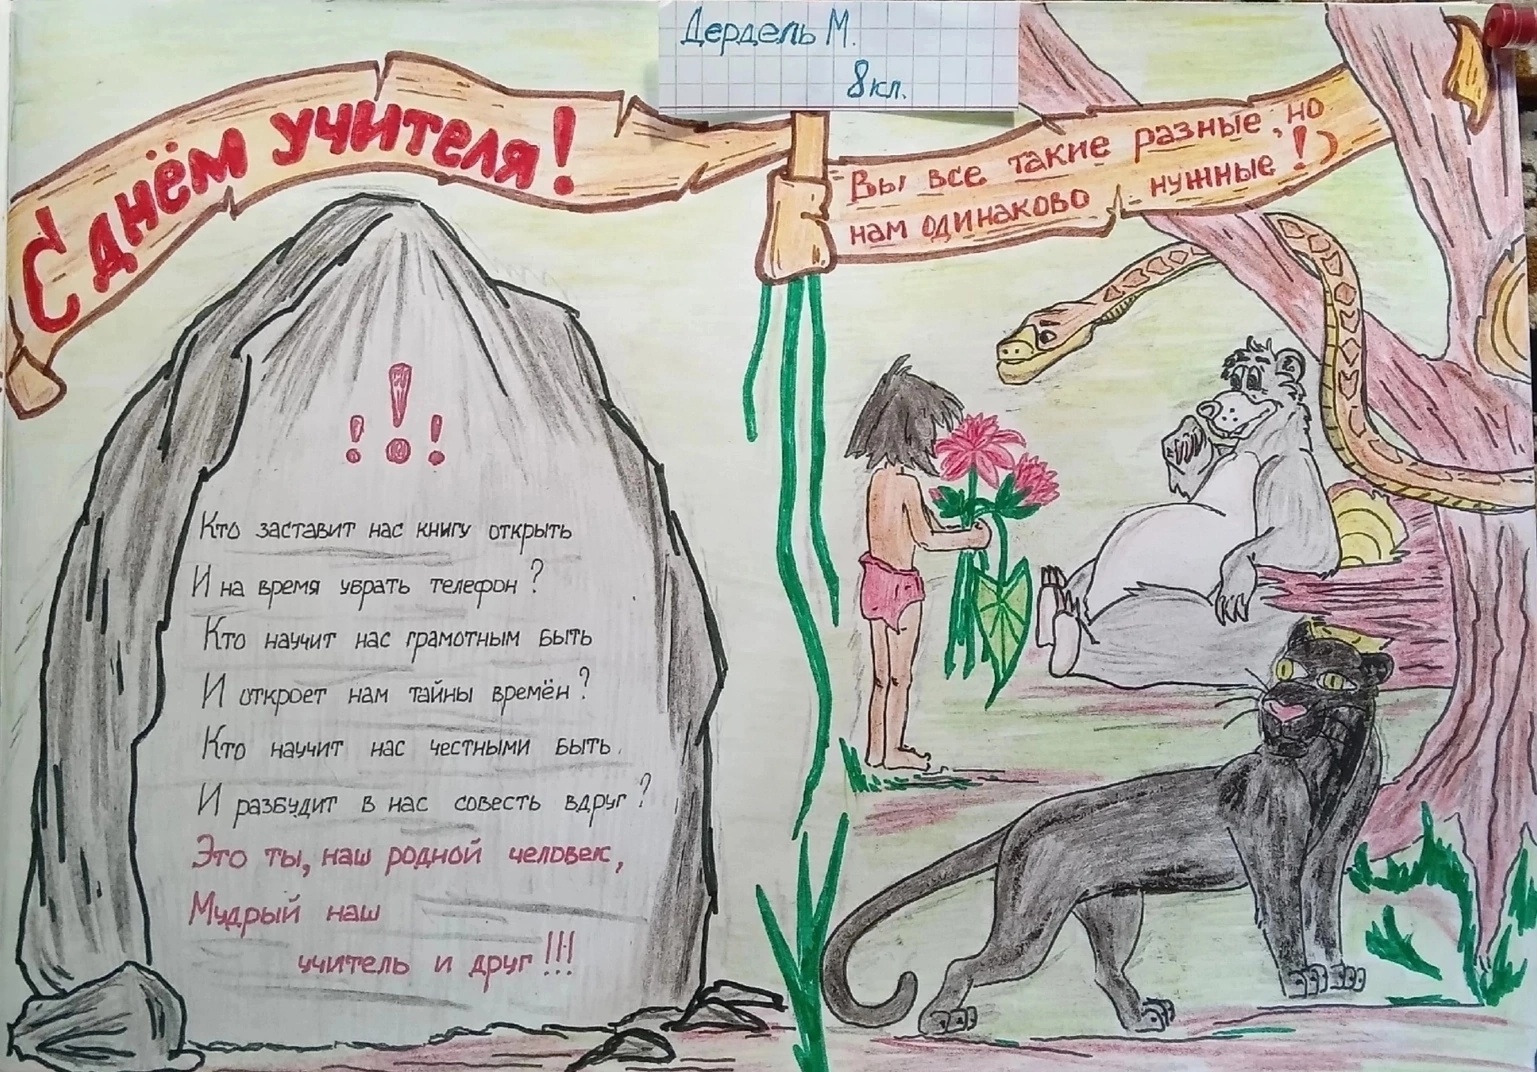 Дердель М.
8кл.
С днём учителя!
Вы все такие разные, но
нам одинаково нужные!)
!!!
Кто заставит нас книгу открыть
И на время убрать телефон?
Кто научит нас грамотным быть
И откроет нам тайны времён?
Кто научит нас честными быть
И разбудит в нас совесть вдруг?
Это ты, наш родной человек,
Мудрый наш
учитель и друг!!!